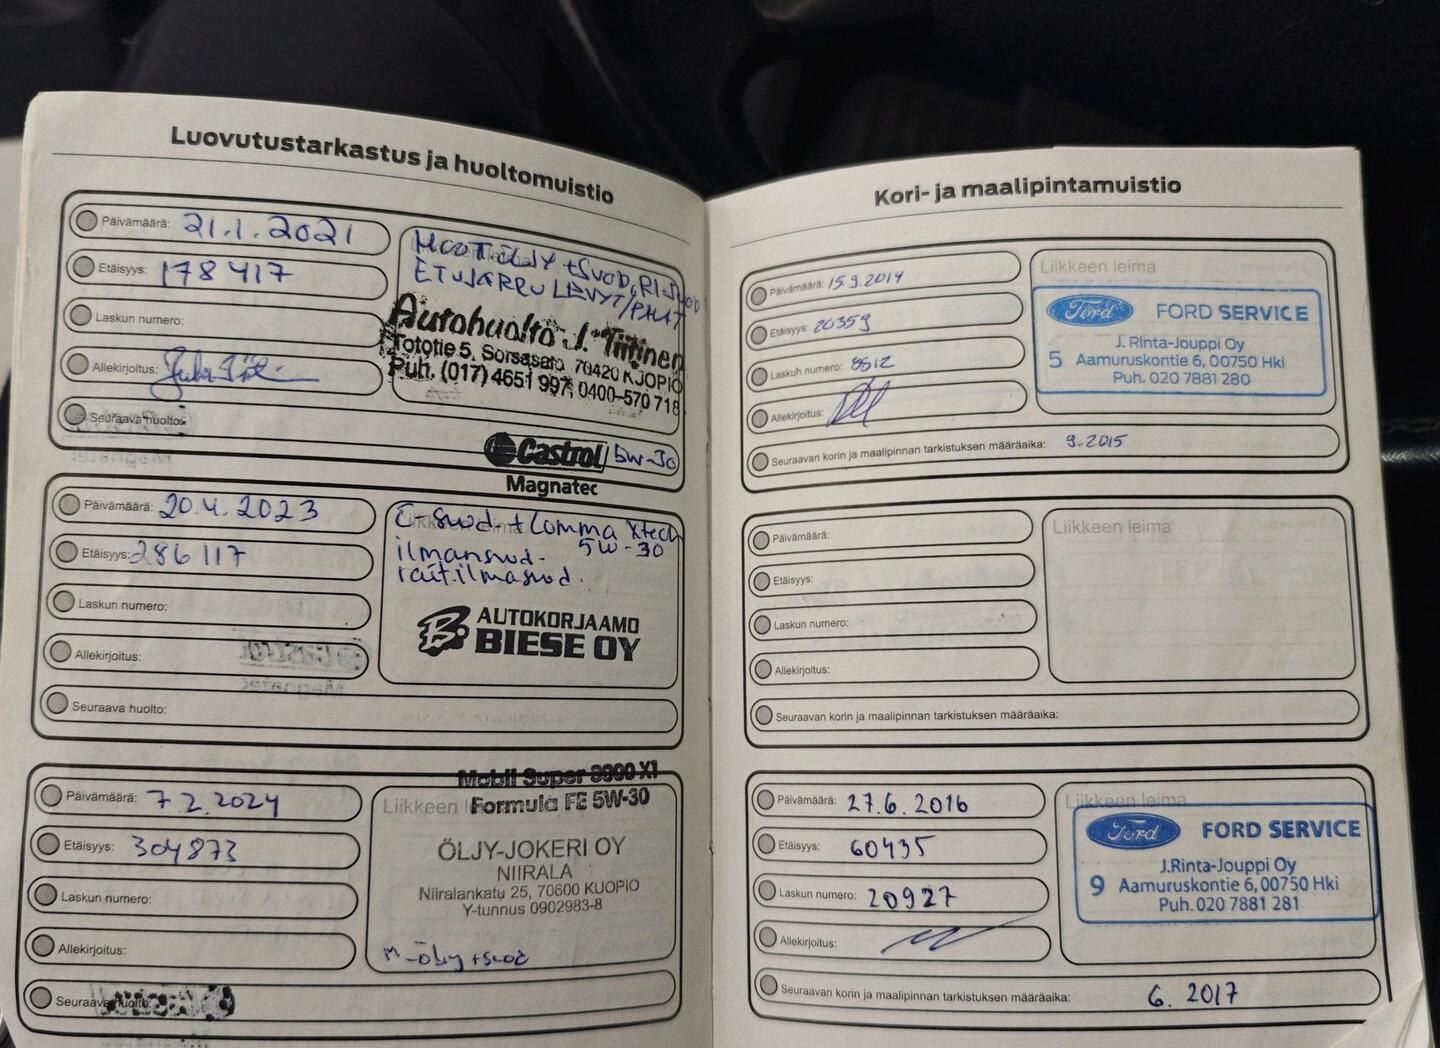 Luovutustarkastus ja huoltomuistio
Päivämäärä: 21.1.2021
Etäisyys: 178417
Laskun numero:
Allekirjoitus:
Seuraava huolto:
MOOT.ÖLJY +SUOD,
ETUJARRU LEVYT/PALAT
Autohuolto J. Tiitinen
Tototie 5, Sorsasalo, 70420 KUOPIO
Puh. (017) 4651 997, 0400-570 718
Castrol 5W-30
Magnatec
Päivämäärä: 20.4.2023
Etäisyys: 286117
Laskun numero:
Allekirjoitus:
Seuraava huolto:
Ö-suod.+Comma Xtech
5W-30
ilmansuod.
rait.ilmasuod.
AUTOKORJAAMO
BIESE OY
Päivämäärä: 7.2.2024
Etäisyys: 304873
Laskun numero:
Allekirjoitus:
Seuraava huolto:
Mobil Super 3000 X1
Formula FE 5W-30
ÖLJY-JOKERI OY
NIIRALA
Niiralankatu 25, 70600 KUOPIO
Y-tunnus 0902983-8
M-öljy +suod
Kori- ja maalipintamuistio
Päivämäärä: 15.9.2014
Etäisyys: 20359
Laskun numero: 8512
Allekirjoitus:
Seuraavan korin ja maalipinnan tarkistuksen määräaika: 9.2015
Liikkeen leima
Ford FORD SERVICE
J. Rinta-Jouppi Oy
5 Aamuruskontie 6, 00750 Hki
Puh. 020 7881 280
Päivämäärä:
Etäisyys:
Laskun numero:
Allekirjoitus:
Seuraavan korin ja maalipinnan tarkistuksen määräaika:
Liikkeen leima
Päivämäärä: 27.6.2016
Etäisyys: 60435
Laskun numero: 20927
Allekirjoitus:
Seuraavan korin ja maalipinnan tarkistuksen määräaika: 6.2017
Liikkeen leima
Ford FORD SERVICE
J.Rinta-Jouppi Oy
9 Aamuruskontie 6, 00750 Hki
Puh. 020 7881 281